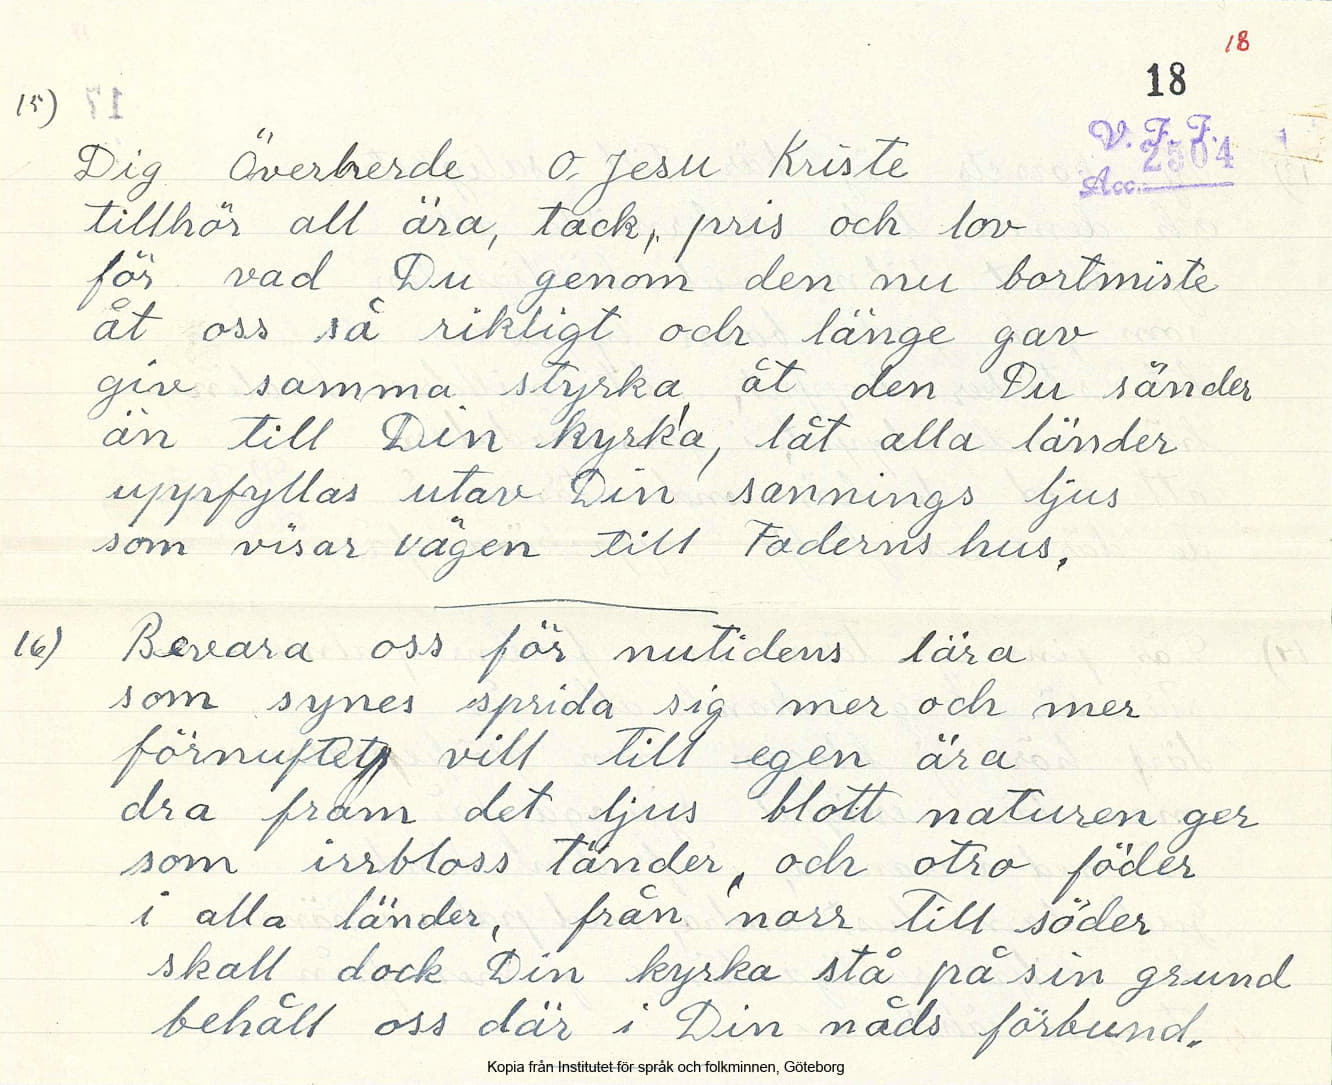 18
18
15)
V. F. F.
2504
Acc.
Dig Överherde O, Jesu Kriste
tillhör all ära, tack, pris och lov
för vad Du genom den nu bortmiste
åt oss så rikligt och länge gav
giv samma styrka, åt den Du sänder
än till Din kyrka, låt alla länder
uppfyllas utav Din sannings ljus
som visar vägen till Faderns hus.
16) Bevara oss för nutidens lära
som synes sprida sig mer och mer
förnuftet vill till egen ära
dra fram det ljus blott naturen ger
som irrbloss tänder, och otro föder
i alla länder, från norr till söder
skall dock Din kyrka stå på sin grund
behåll oss där i Din nåds förbund.
Kopia från Institutet för språk och folkminnen, Göteborg